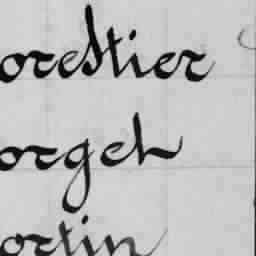 orestier
orgel
ortin